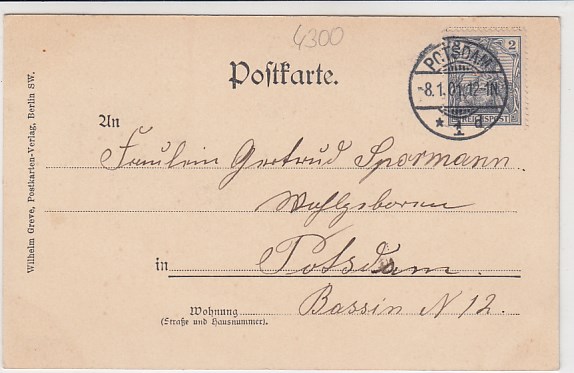 4300
Postkarte.
2
REICHSPOST
POTSDAM
-8.1.01.12-1N.
* 1 d
An
Fräulein Gertrud Spormann
Wohlgeboren
in Potsdam.
Bassin N 12.
Wohnung
(Straße und Hausnummer).
Wilhelm Greve, Postkarten-Verlag, Berlin SW.